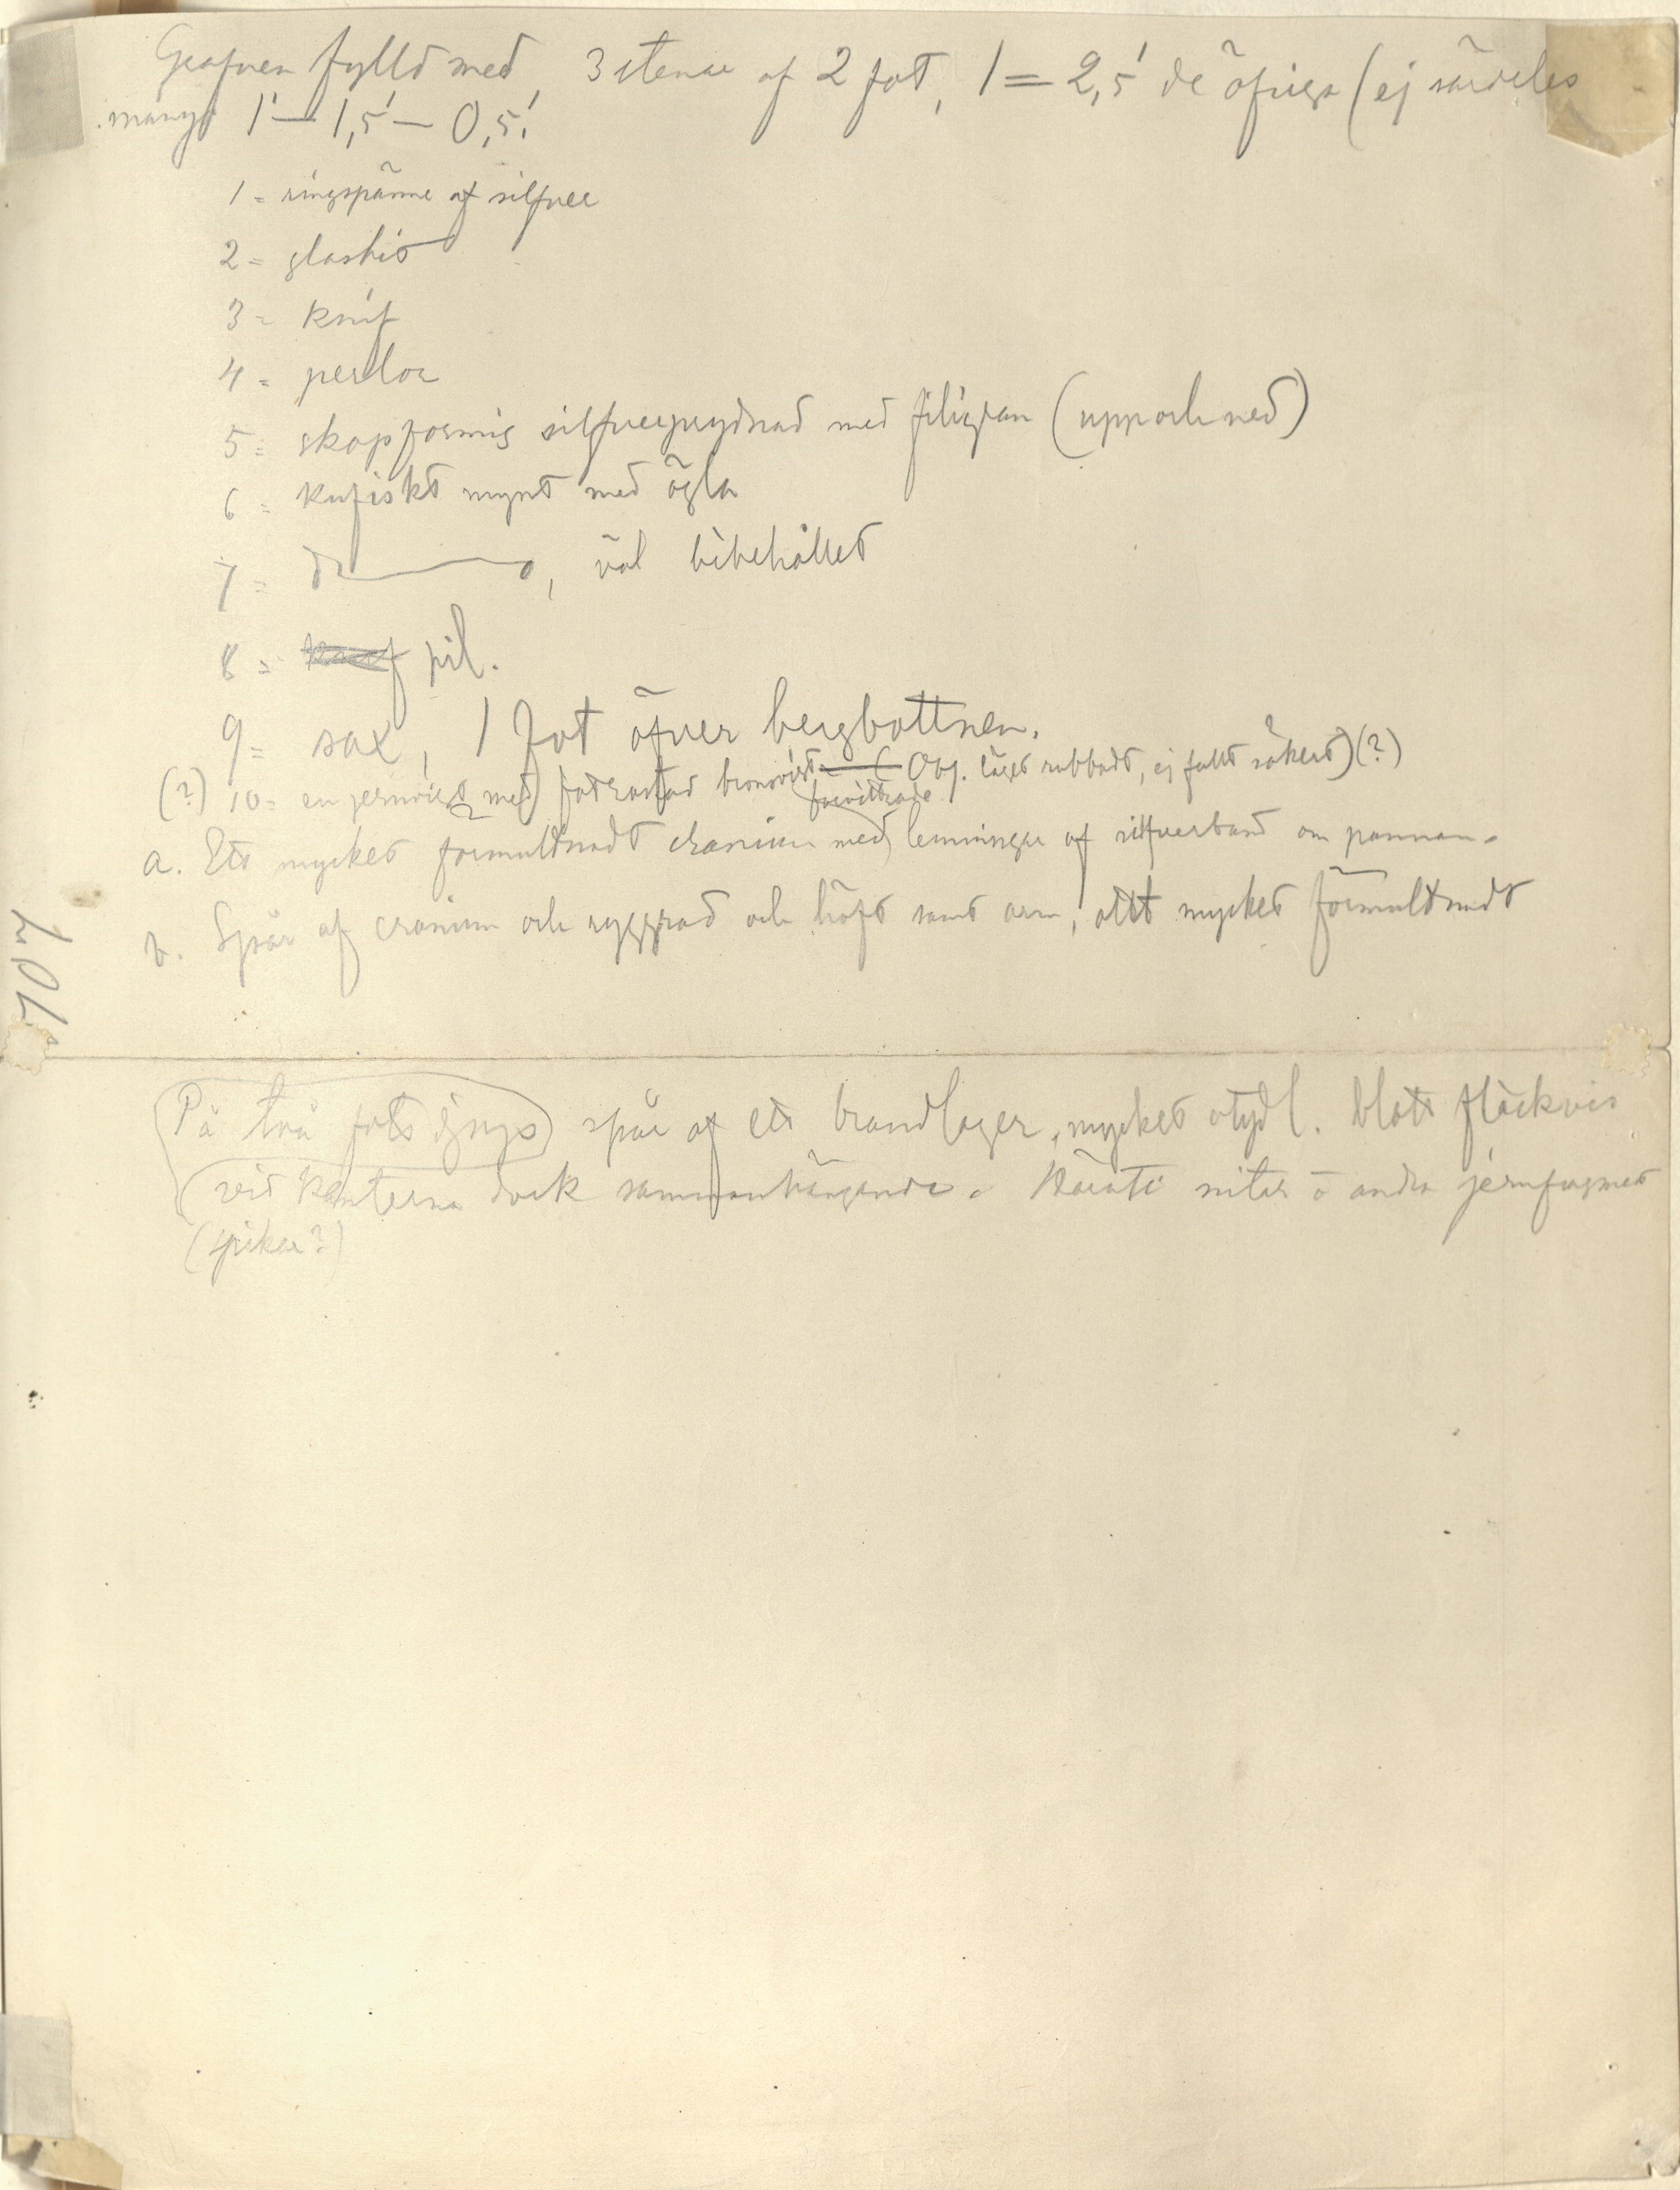 Grafven fylld med 3 stenar af 2 fot, 1 = 2,5' de öfriga (ej särdeles
många 1' — 1,5' — 0,5'.
1 = ringspänne af silfver
2 = glasbit
3 = knif
4 = perlor
5 = skopformig silfverprydnad med filigran (upp och ned)
6 = kufiskt mynt med ögla
7 = d:o, väl bibehållet
8 = knif pil.
9 = sax, 1 fot öfver bergbottnen.
(?) 10 = en jernvigt med bronsvigt ( Obs. läget rubbadt, ej fullt säkert) (?)
förvittrade
a. Ett mycket förmultnadt cranium med lemningar af silfverband om pannan.
b. Spår af cranium och ryggrad och höft samt arm, allt mycket förmultnadt
På två fots djup spår af ett brandlager, mycket otydl. blott fläckvis
vid kanterna dock sammanhängande. nitar o andra jernfragment
(spikar?)